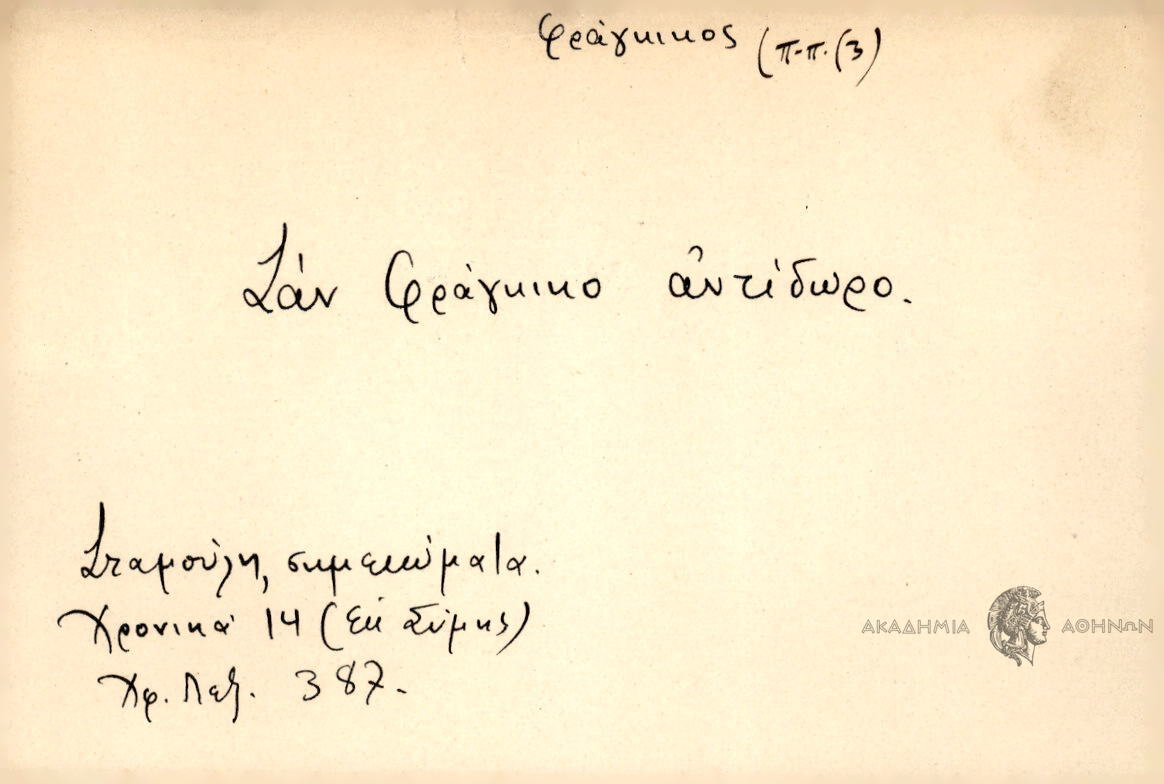 φράγκικος (π-π. (3)
Σάν Φράγκικο ἀντίδωρο.
Σταμούλη, σημειώματα.
Χρονικά 14 (ἐκ Σύμης)
Χφ. Λεξ. 387.
ΑΚΑΔΗΜΙΑ ΑΘΗΝΩΝ